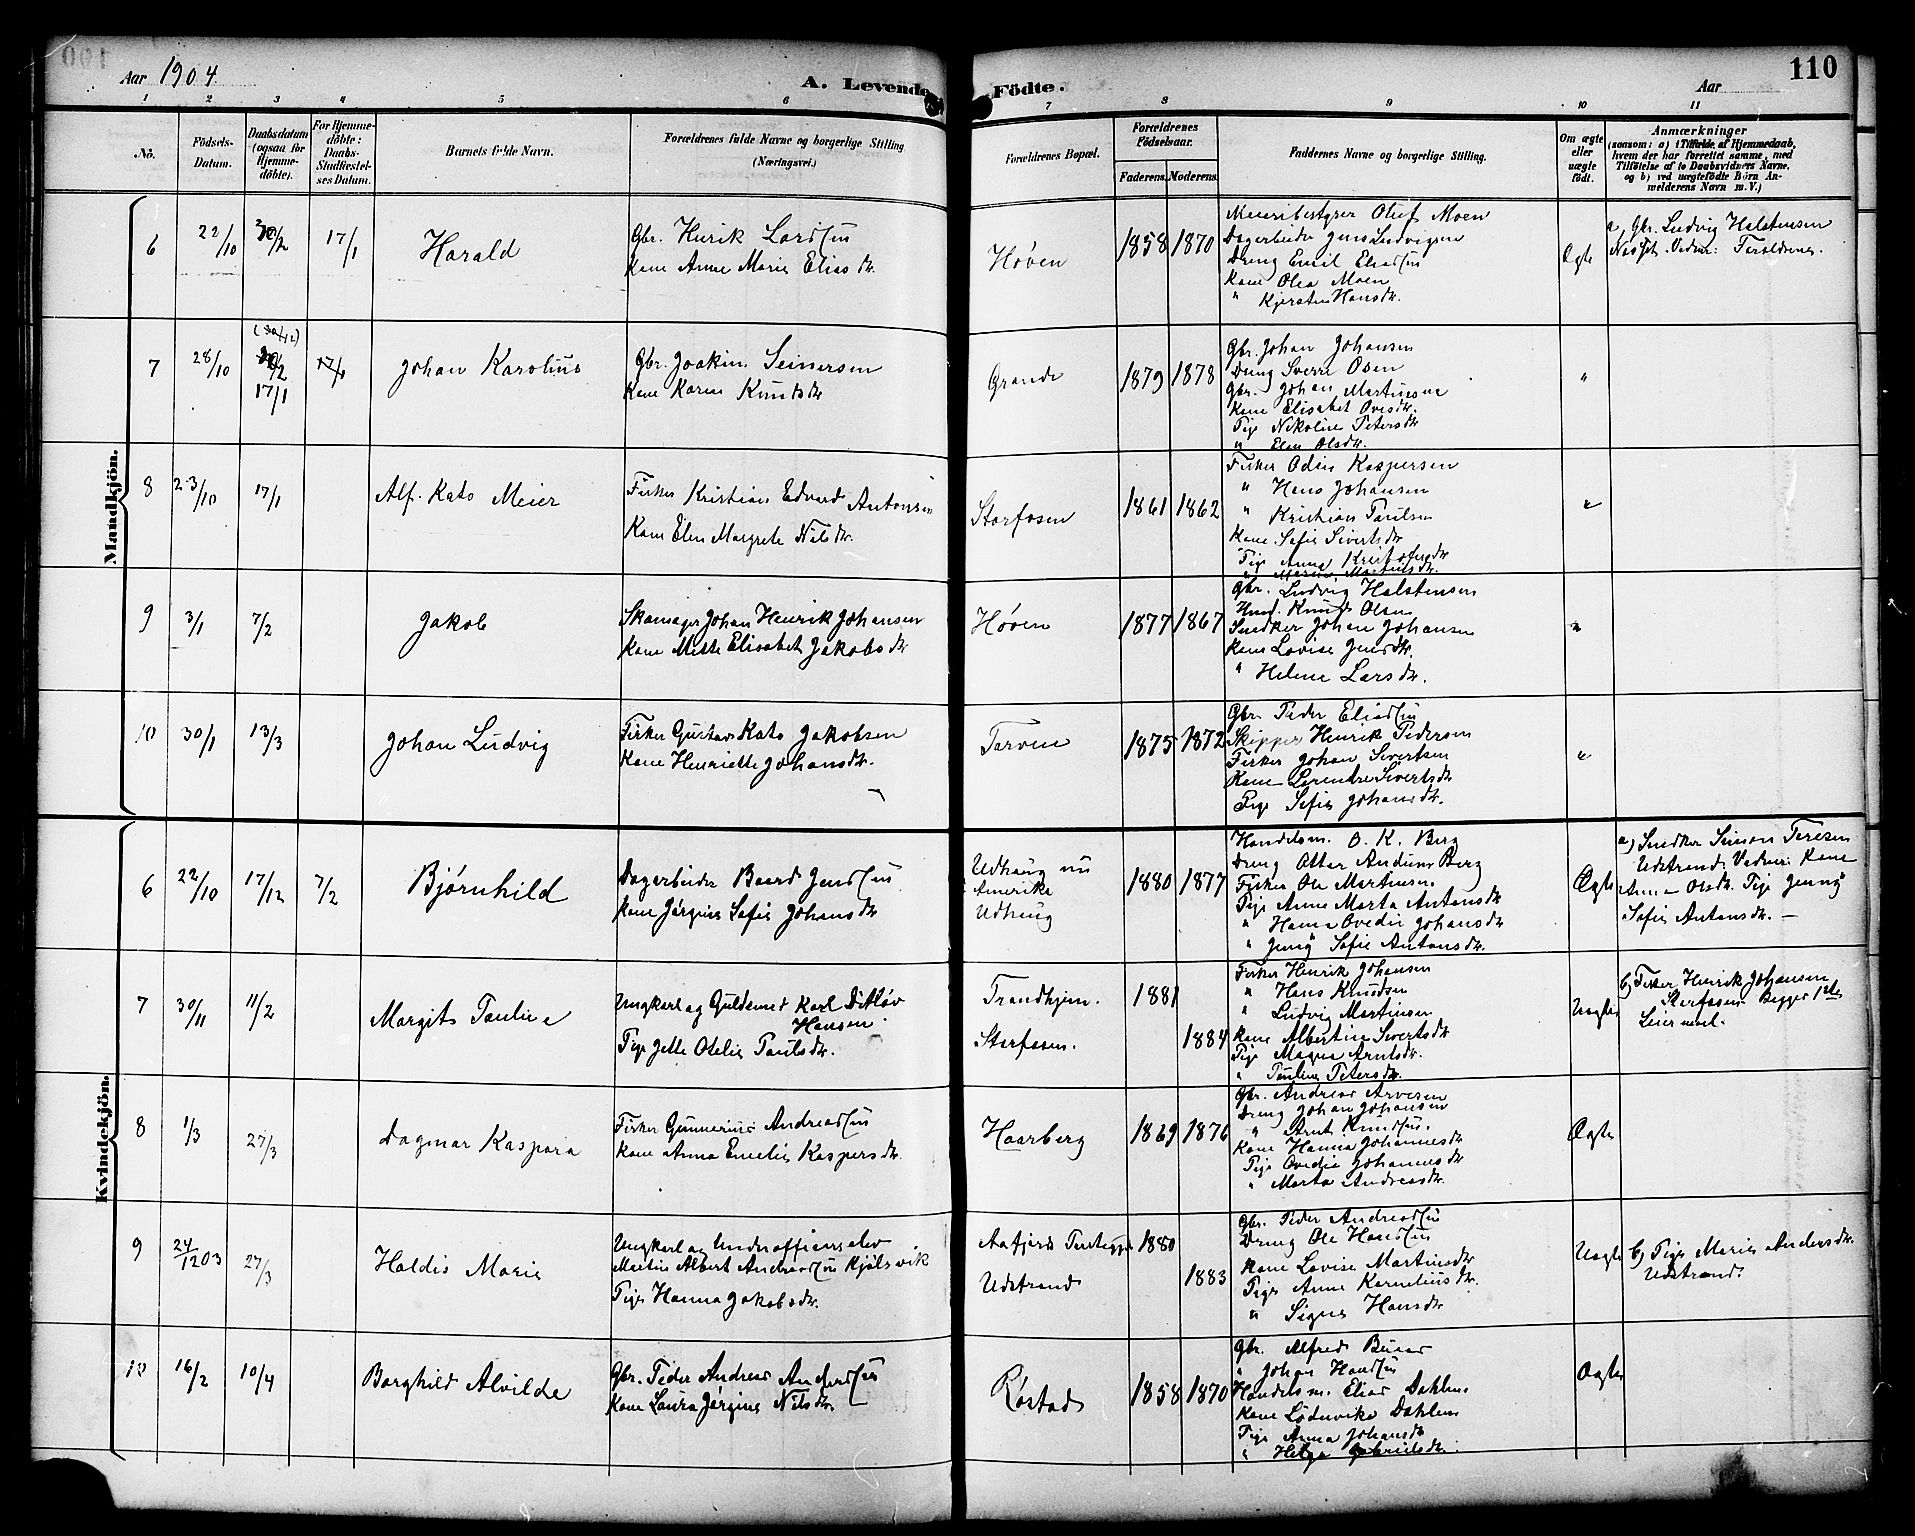 Aar 1904.
A. Levende Födte.
Aar
110
1 2 3 4 5 6 7 8 9 10 11
No.
Födsels-Datum.
Daabsdatum (ogsaa for Hjemme-döbte).
For Hjemme-döbte: Daabs-Stadfæstel-ses Datum.
Barnets fulde Navn.
Forældrenes fulde Navne og borgerlige Stilling (Næringsvei.)
Forældrenes Bopæl.
Forældrenes Födselsaar.
Faderens. Moderens.
Faddernes Navne og borgerlige Stilling.
Om ægte eller uægte födt.
Anmærkninger
(saasom: a) i Tilfælde af Hjemmedaab,
hvem der har forrettet samme, med
Tilföielse af to Daabsvidners Navne.
og b) ved uægtefödte Börn An-
melderens Navn m. V.)
Mandkjön.
6 22/10 17/1 Harald
Gbr. Henrik Larssen
Kone Anne Marie Eliasdtr.
Høven 1858 1870
Meieribestyrer Oluf Moen
Dagarbeider Jens Ludvigsen
Dreng Emil Eliassen
Kone Olea Moen
" Kjersten Hansdtr.
Ægte
a, Gbr. Ludvig Halstensen
7 28/10 (30/12) 17/1 17/1 Johan Karolius
Gbr. Joakim Seinersen
Kone Karen Knutsdtr
Grande 1879 1878
Gbr. Johan Johansen
Dreng Sverre Osen
Gbr. Johan Martinsen
Kone Elisabet Ovesdtr.
Pige Nikoline Petersdtr
" Elen Olsdtr.
"
8 23/10 17/1 Alf Kato Meier
Fisker Kristian Edvard Antonsen
Kone Elen Margrete Nilsdtr.
Storfosen 1861 1862
Fisker Odin Kaspersen
" Hans Johansen
" Kristian Paulsen
Kone Sofie Sivertsdtr
Pige Anna Kristofersdtr
" Maren Martinsdtr.
"
9 3/1 7/2 Jakob
Skomager Johan Henrik Johansen
Kone Mette Elisabet Jakobsdtr
Høven 1877 1867
Gbr. Ludvig Halstensen
Knut Olsen
Snedker Johan Johansen
Kone Lovise Jensdtr.
" Helene Larsdtr.
"
10 30/1 13/3 Johan Ludvig
Fisker Gustav Kato Jakobsen
Kone Henriette Johansdtr.
Tarven 1875 1872
Gbr Peder Eliassen
Skipper Henrik Pedersen
Fisker Johan Sivertsen
Kone Lorentse Sivertsdtr
Pige Sofie Johansdtr.
"
Kvindekjön.
6 22/10 17/12 7/2 Bjørnhild
Dagarbeider Baard Jenssen
Kone Jørgine Sofie Johansdtr
Udhaug nu
Amerika
Udhaug
1880 1877
Handelsm. O. K. Berg
Dreng Otter Andurs Berg
Fisker Ole Martinsen
Pige Anne Marta Antonsdtr
" Hanna Ovedie Johansdtr
" Jenny Sofie Antonsdtr.
Ægte
a, Snedker Simon Teresen
Udstrand. Vidner: Kone
Anne Olsdtr. Pige Jenny
Sofie Antonsdtr. —
7 30/11 11/2 Margit Pauline
Ungkarl og Guldsmed Karl Ditløv
Hansen
Pige Jette Otelie Paulsdtr.
Trondhjem.
Storfosen.
1881
1884
Fisker Henrik Johansen
" Hans Knudsen
" Ludvig Martinsen
Kone Albertine Sivertsdtr.
Pige Magna Arntsdtr.
" Pauline Petersdtr.
Uægte
b, Fisker Henrik Johansen
Storfosen. Begges 1ste
Leiermaal.
8 1/3 27/3 Dagmar Kaspara
Fisker Gunnerius Andreassen
Kone Anna Emelie Kaspersdtr.
Haarberg 1869 1876
Gbr. Andreas Arvesen
Dreng Johan Johansen
" Arnt Knudsen.
Kone Hanna Johannesdtr
Pige Ovedia Johannesdtr
" Marta Andreasdtr.
Ægte
9 24/12 03 27/3 Haldis Marie
Ungkarl og Underofficerselev
Martin Albert Andreassen Kjølsvik
Pige Hanna Jakobsdtr.
Aafjord
Udstrand
1880
1883
Gbr. Peder Andreassen
Dreng Ole Hanssen
Kone Lovise Martinsdtr
Pige Anne Korneliusdtr.
" Signe Hansdtr
Uægte
b, Pige Marie Andersdtr.
Udstrand.
10 16/2 10/4 Borghild Alvilde
Gbr. Peder Andreas Anderssen
Kone Laura Jørgine Nilsdtr.
Røstad 1858 1870
Gbr. Alfred Buaas
" Johan Hanssen
Handelsm. Elias Dahlen
Kone Lødovike Dahlen
Pige Anna Johansdtr
" Helga Gabrielsdtr.
Ægte